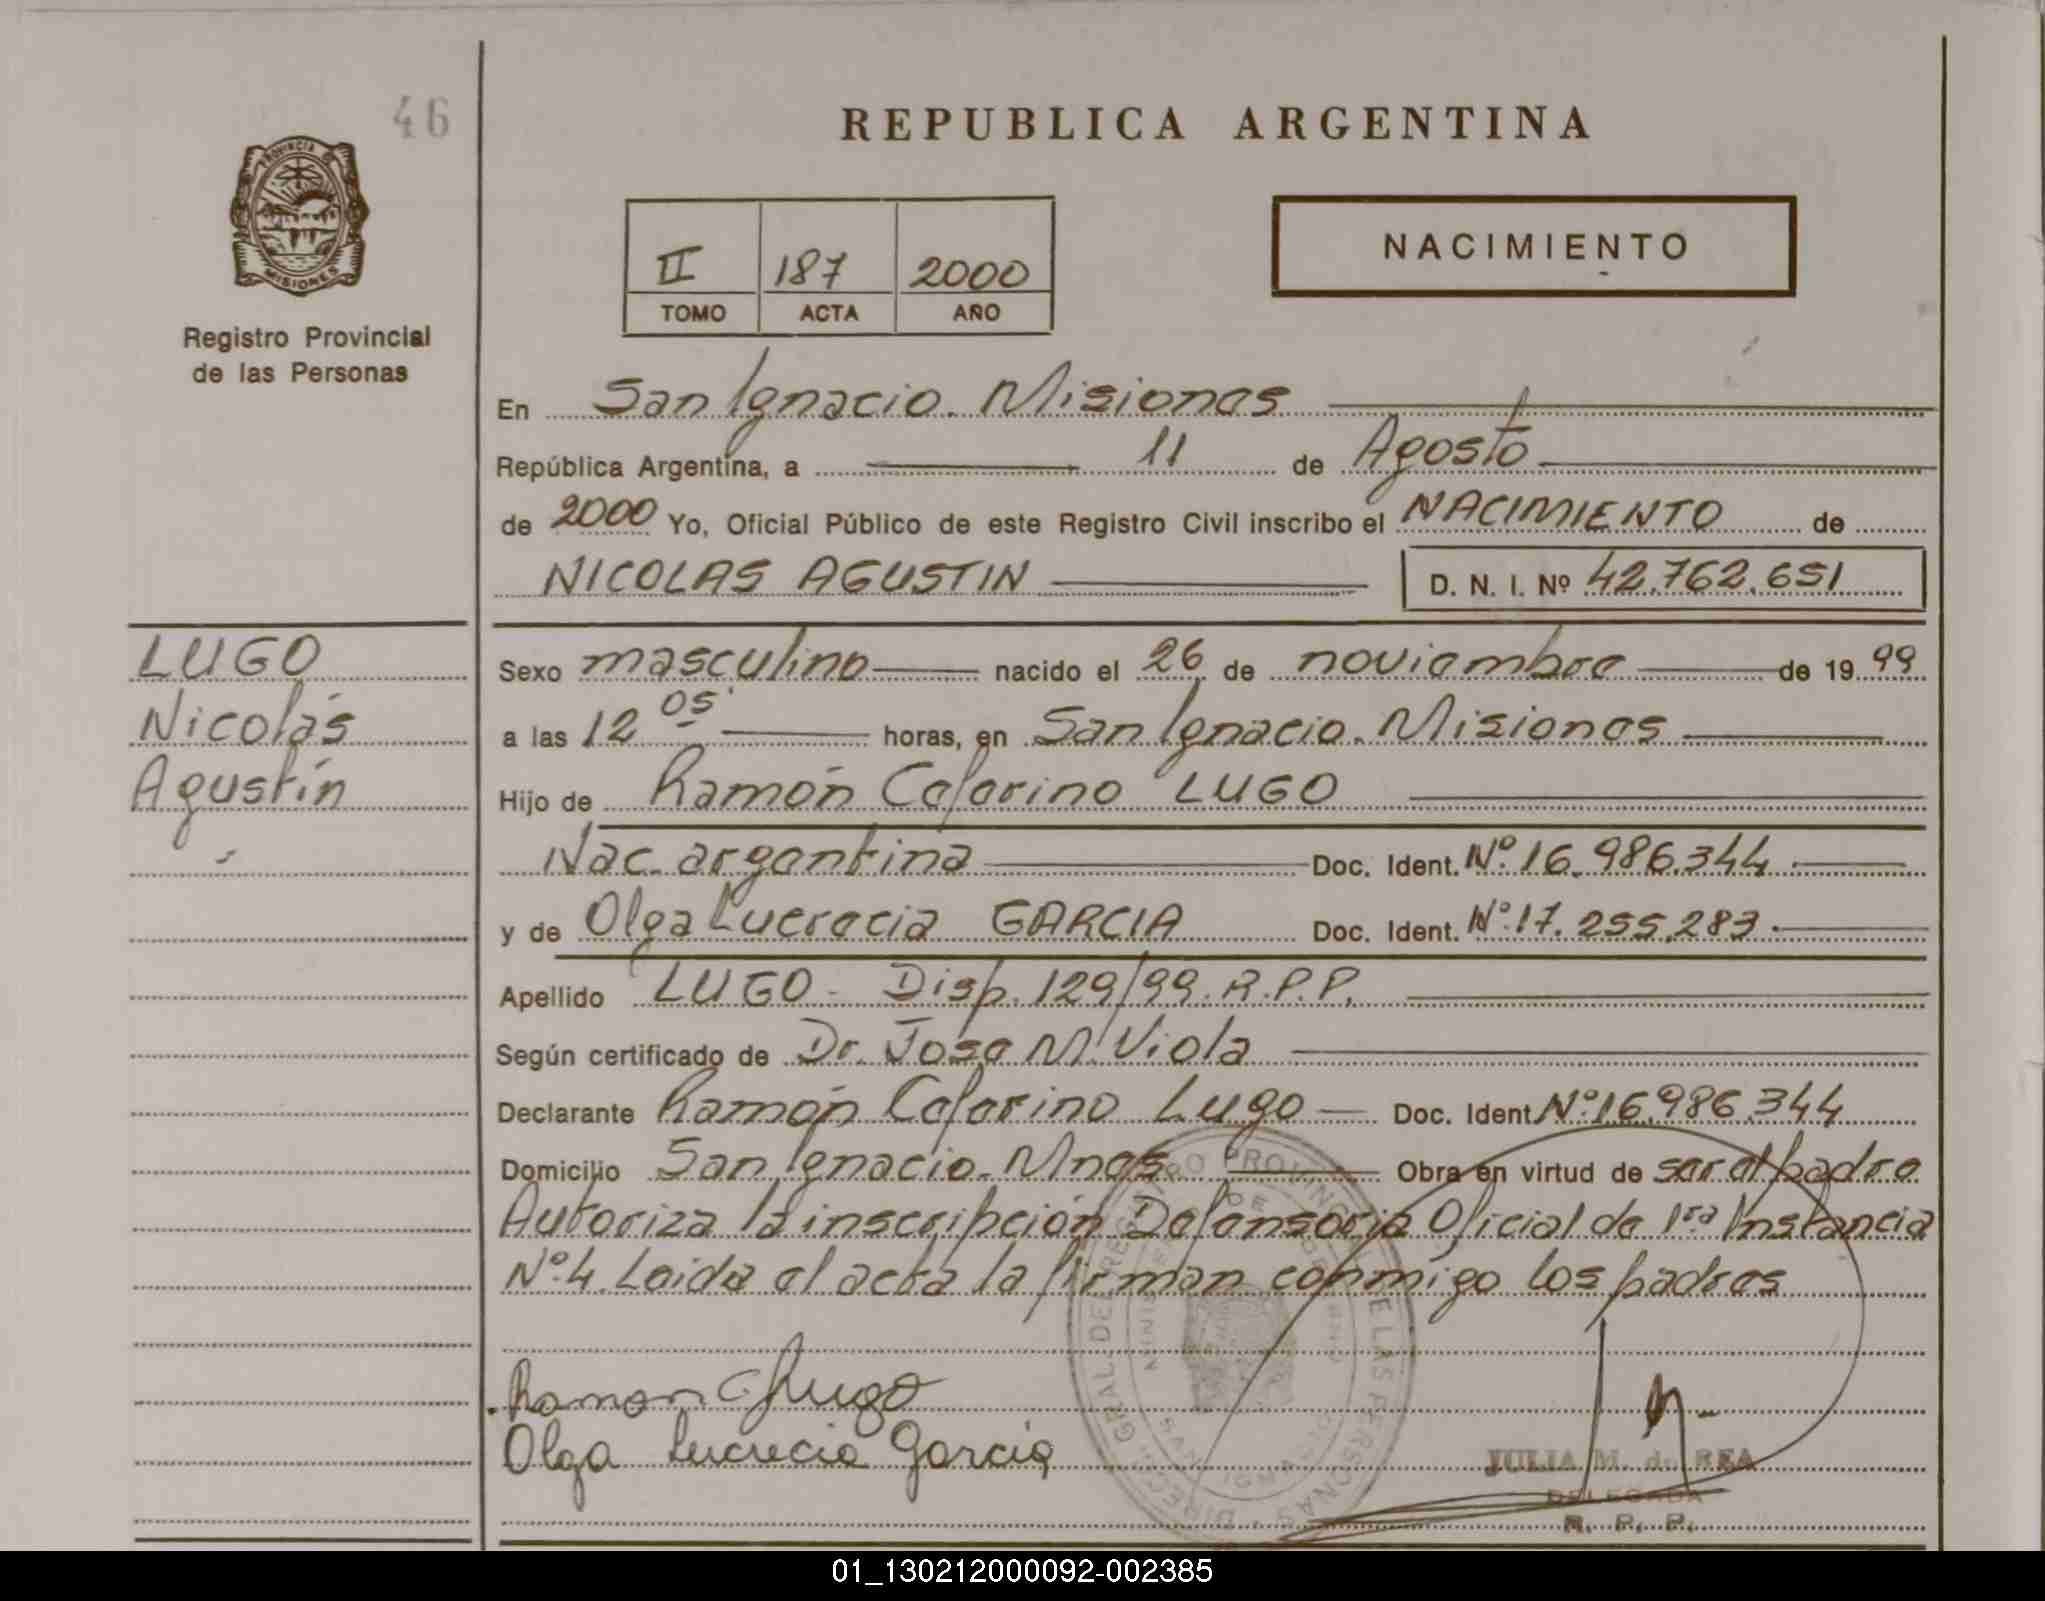 46
REPUBLICA ARGENTINA
PROVINCIA DE
MISIONES
Registro Provincial
de las Personas
II 187 2000
TOMO ACTA AÑO
NACIMIENTO
En San Ignacio. Misiones
República Argentina, a 11 de Agosto
de 2000 Yo, Oficial Público de este Registro Civil inscribo el NACIMIENTO de
NICOLAS AGUSTIN D. N. I. Nº 42.762.651
LUGO
Nicolás
Agustín
Sexo masculino nacido el 26 de noviembre de 19 99
a las 12 05' horas, en San Ignacio. Misiones
Hijo de Ramón Ceferino LUGO
Nac. argentina Doc. Ident. Nº 16.986.344
y de Olga Lucrecia GARCIA Doc. Ident. Nº 17.255.283
Apellido LUGO - Disp. 129/99. R.P.P.
Según certificado de Dr. Jose M. Viola
Declarante Ramón Ceferino Lugo Doc. Ident. Nº 16.986.344
Domicilio San Ignacio. Mnes Obra en virtud de ser el padre
Autoriza la inscripción Defensoria Oficial de 1ra Instancia
Nº 4. Leida el acta la firman conmigo los padres
Ramon C Lugo
Olga Lucrecia Garcia
JULIA M. de REA
DELEGADA
R. P. P.
01_130212000092-002385